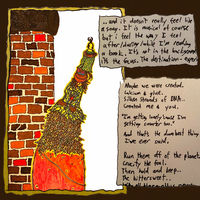 ...and it doesn't really feel like
a song. It is musical of course
but i feel the way I feel
after/during/while I'm reading
a book. It's not in the background
it's the focus. The destination.
Maybe we were created.
Calcium & glue.
Silken strands of DNA...
Created me & you.
"I'm getting lonely would I'm
getting counter too."
And that's the dumbest thing
I've ever said.
Run them off of the planet.
Crucify the fool.
Then hold and keep...
Be bittersweet.